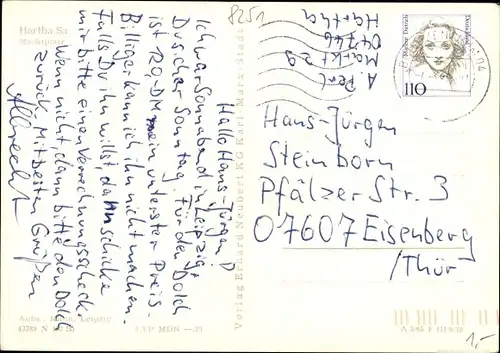 Hartha Sa
Marktplatz
8251
Hallo Hans-Jürgen D
Ich war Sonnabend in Leipzig,
Du sicher Sonntag. Für den Dolch
ist 120,-DM mein unterster Preis.
Billiger kann ich ihn nicht machen.
Falls Du ihn willst, dann schicke
mir bitte einen Verrechnungsscheck.
Wenn nicht, dann bitte den Dolch
zurück. Mit besten Grüßen
Albrecht
Aufn.: Leipzig
Verlag Erhard Neubert KG Karl-Marx-Stadt
A
Markt 29
04746
Hartha
110
Hans-Jürgen
Steinborn
Pfälzer Str. 3
07607 Eisenberg
/Thür
1,-